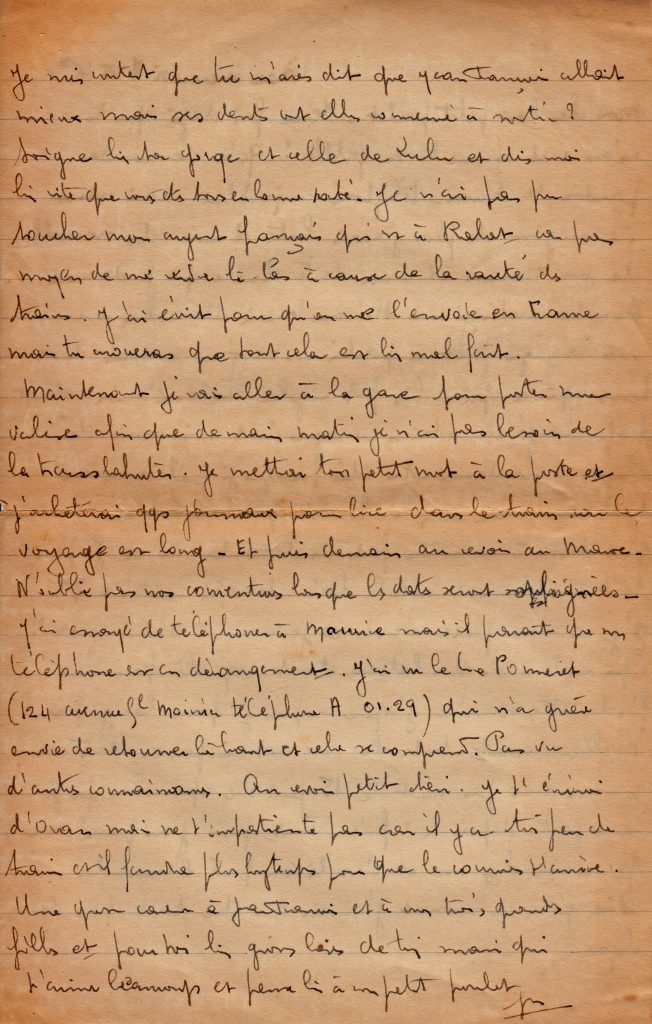 Je suis content que tu m'aies dit que Jean allait
mieux mais ses dents ont elles commencé à sortir ?
Soigne bien ta gorge et celle de Lulu et dis moi
bien vite que vous êtes tous en bonne santé. Je n'ai pas pu
toucher mon argent français qui est à Rabat pas
moyen de me là bas à cause de la rareté des
trains. J'ai écrit pour qu'on me l'envoie en France
mais tu avoueras que tout cela est bien mal fait.
Maintenant je vais aller à la gare pour porter ma
valise afin que demain matin je n'ai pas besoin de
la. Je mettrai ton petit mot à la poste et
j'achèterai qqs journaux pour lire dans le train car le
voyage est long - Et puis demain au revoir au Maroc.
N'oublie pas nos conventions lorsque les dates seront
J'ai essayé de téléphoner à Maurice mais il parait que son
téléphone est en dérangement. J'ai vu le Pomeret
(124 avenue Gl téléphone A 01.29) qui n'a guère
envie de retourner là haut et cela se comprend. Pas vu
d'autres connaissances. Au revoir petit chéri. Je t'écrirai
d'Oran mais ne t'impatiente pas car il y a très peu de
train et il faudra plus longtemps pour que le courrier t'arrive.
Une grosse caresse à et à nos trois grandes
filles et pour toi bien gros bons baisers de ton mari qui
t'aime beaucoup et pense bien à son petit poulet